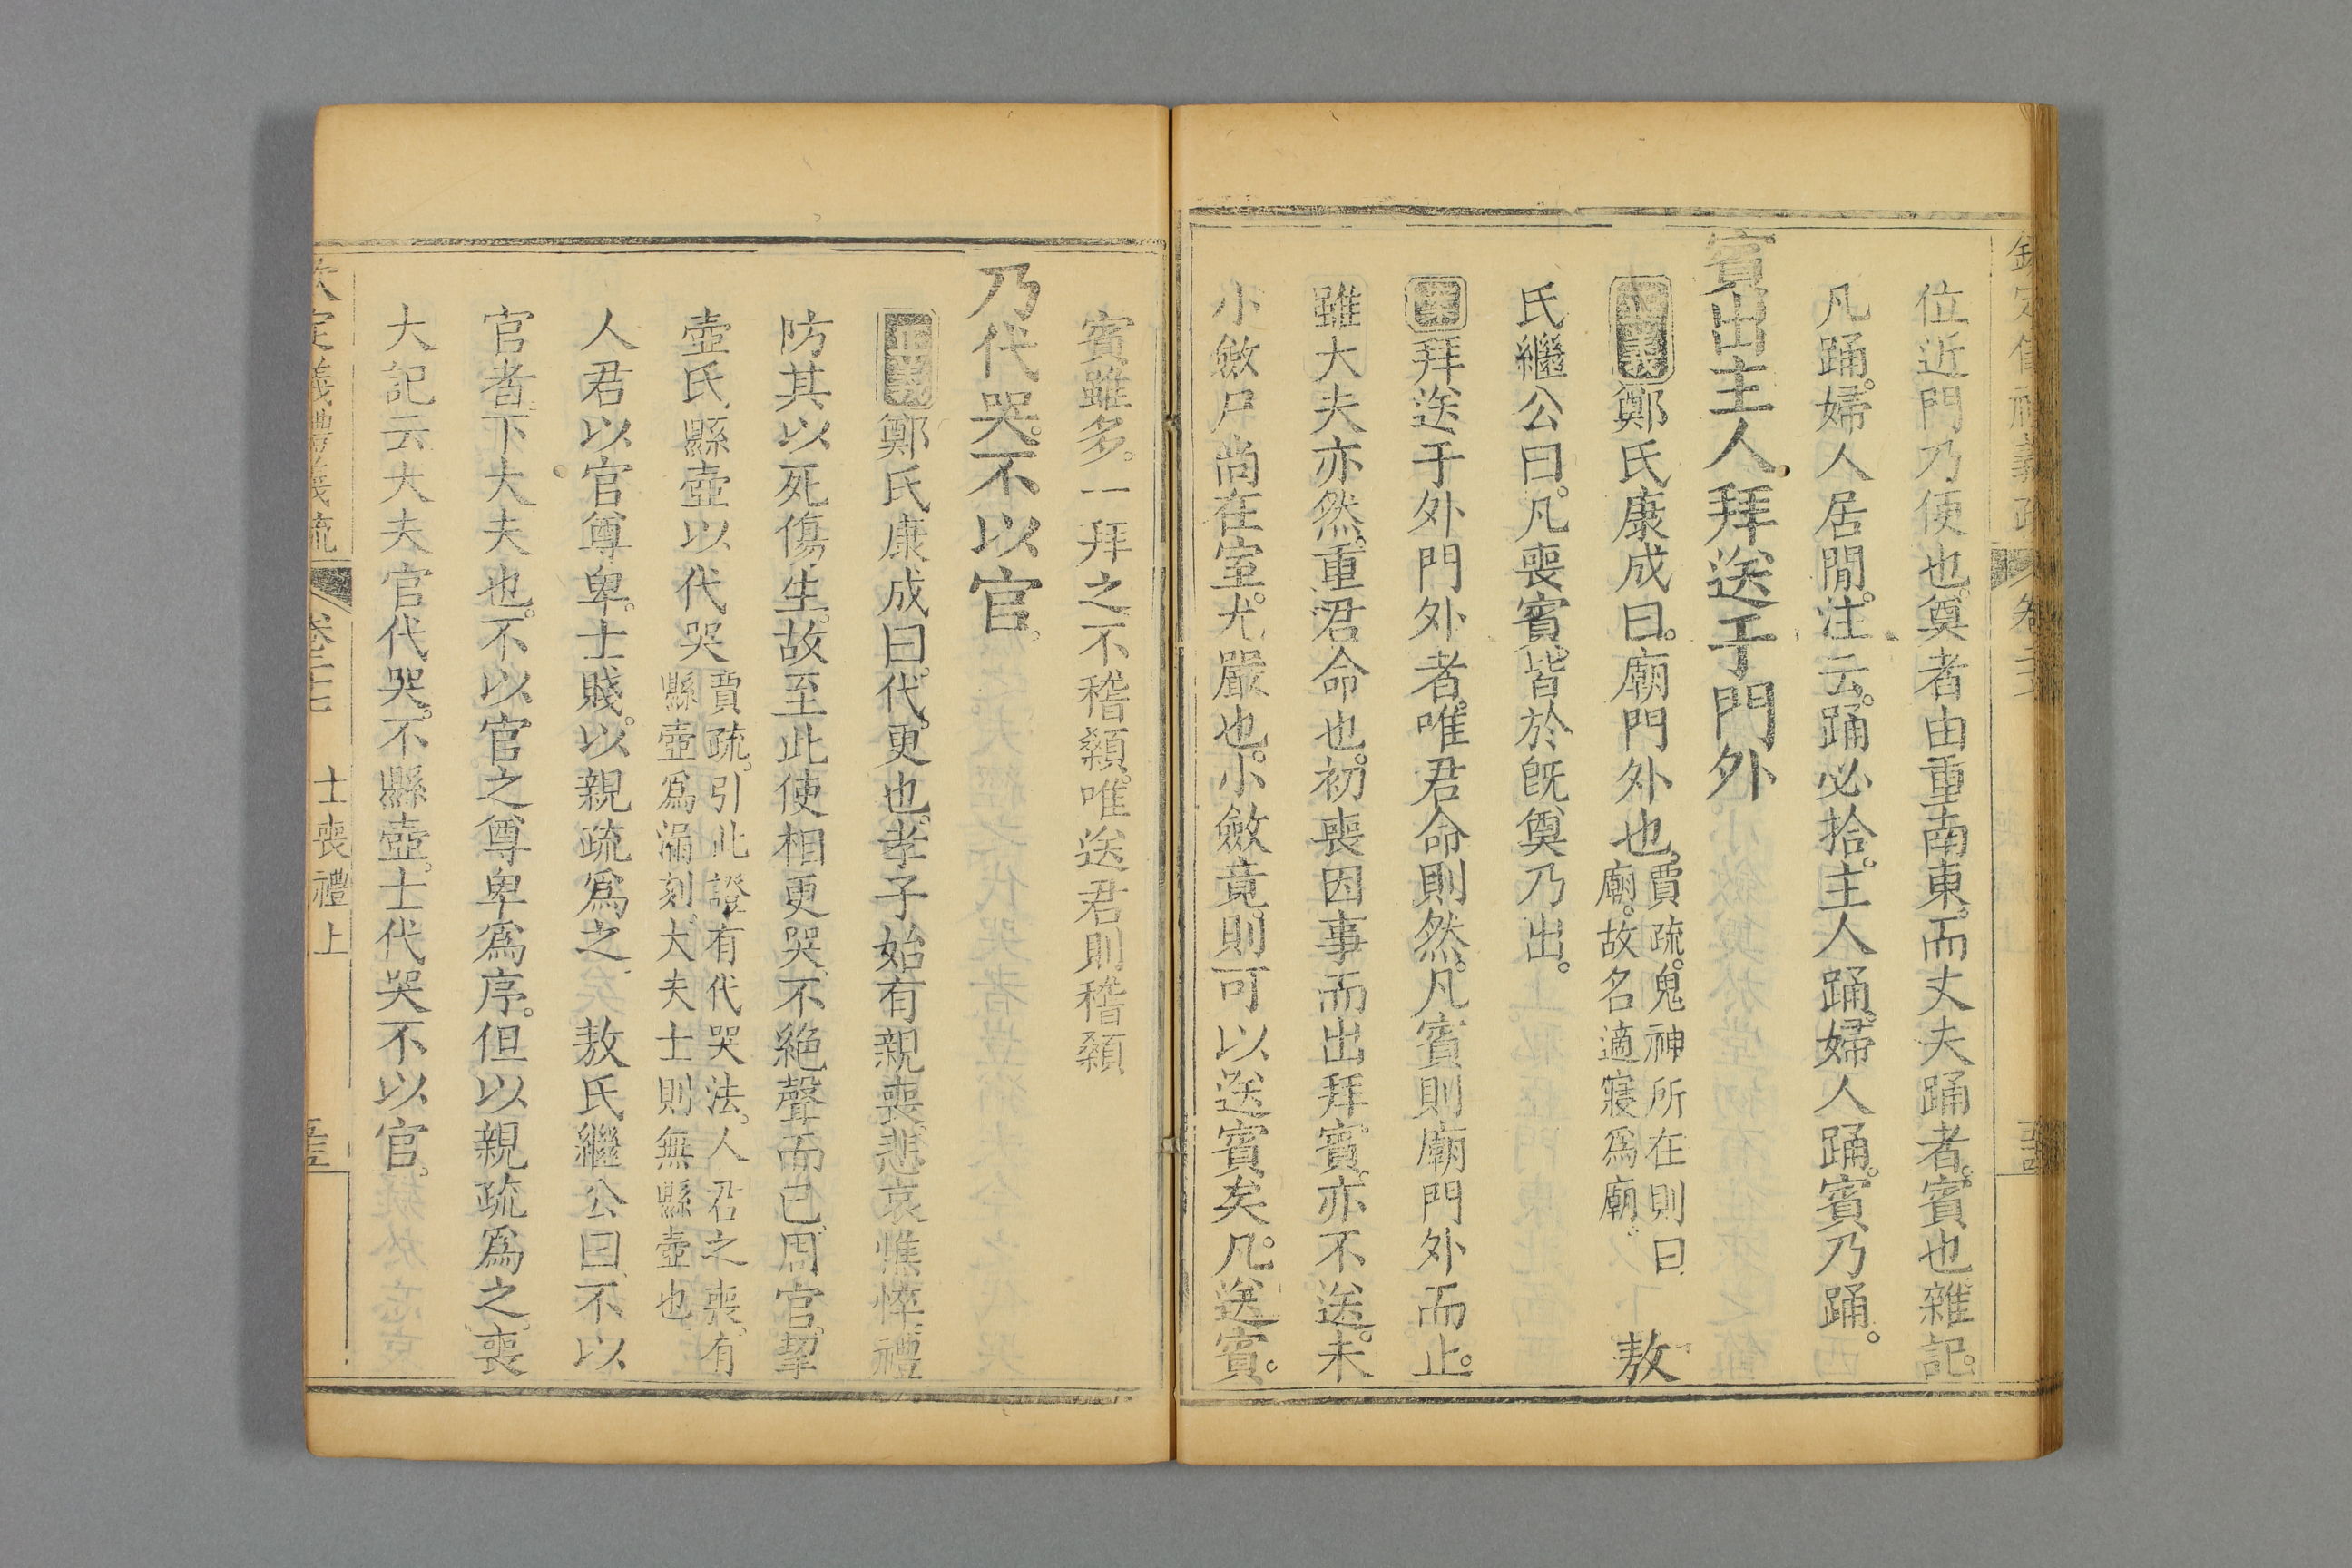 位近門乃便也。奠者由重南東。而丈夫踊者。賓也雜記。
凡踊。婦人居閒。注云。踊必拾。主人踊。婦人踊。賓乃踊。
賓出主人。拜送于門外
正義鄭氏康成曰。廟門外也。賈疏。鬼神所在則曰廟。故名適寢爲廟。敖
氏繼公曰。凡喪賓。皆於旣奠乃出。
案拜送于外門外者。唯君命則然。凡賓則廟門外而止。
雖大夫亦然。重君命也。初喪因事而出拜賓。亦不送。未
小斂尸尚在室。尤嚴也。小斂竟。則可以送賓矣。凡送賓。
賓雖多。一拜之不稽顙。唯送君則稽顙
乃代哭。不以官。
正義鄭氏康成曰。代。更也。孝子始有親喪。悲哀憔悴。禮
防其以死傷生。故至此使相更哭。不絶聲而已。周官。挈
壺氏縣壺以代哭賈疏。引此證有代哭法。人君之喪。有縣壺爲漏刻。大夫士則無縣壺也
人君以官尊卑。士賤。以親疏爲之。敖氏繼公曰。不以
官者。下大夫也。不以官之尊卑爲序。但以親疏爲之。喪
大記云大夫官代哭。不縣壺。士代哭不以官。
欽定儀禮義疏 卷二十七 士喪禮上